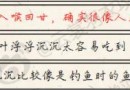 入喉回甘，确实很像人
叶浮浮沉沉太容易吃到
沉比较像是钓鱼时的鱼